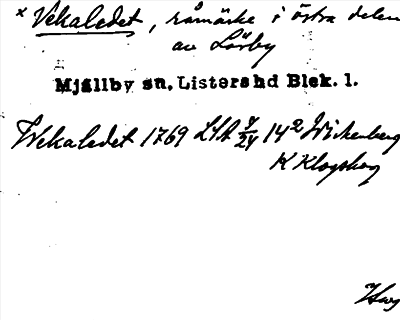 x Vekaledet, råmärke i östra delen
av Lörby
Mjällby sn, Listers hd Blek. l.
Wekaledet 1769 LSA 7/24 14² Wickenberg
K Klogskog